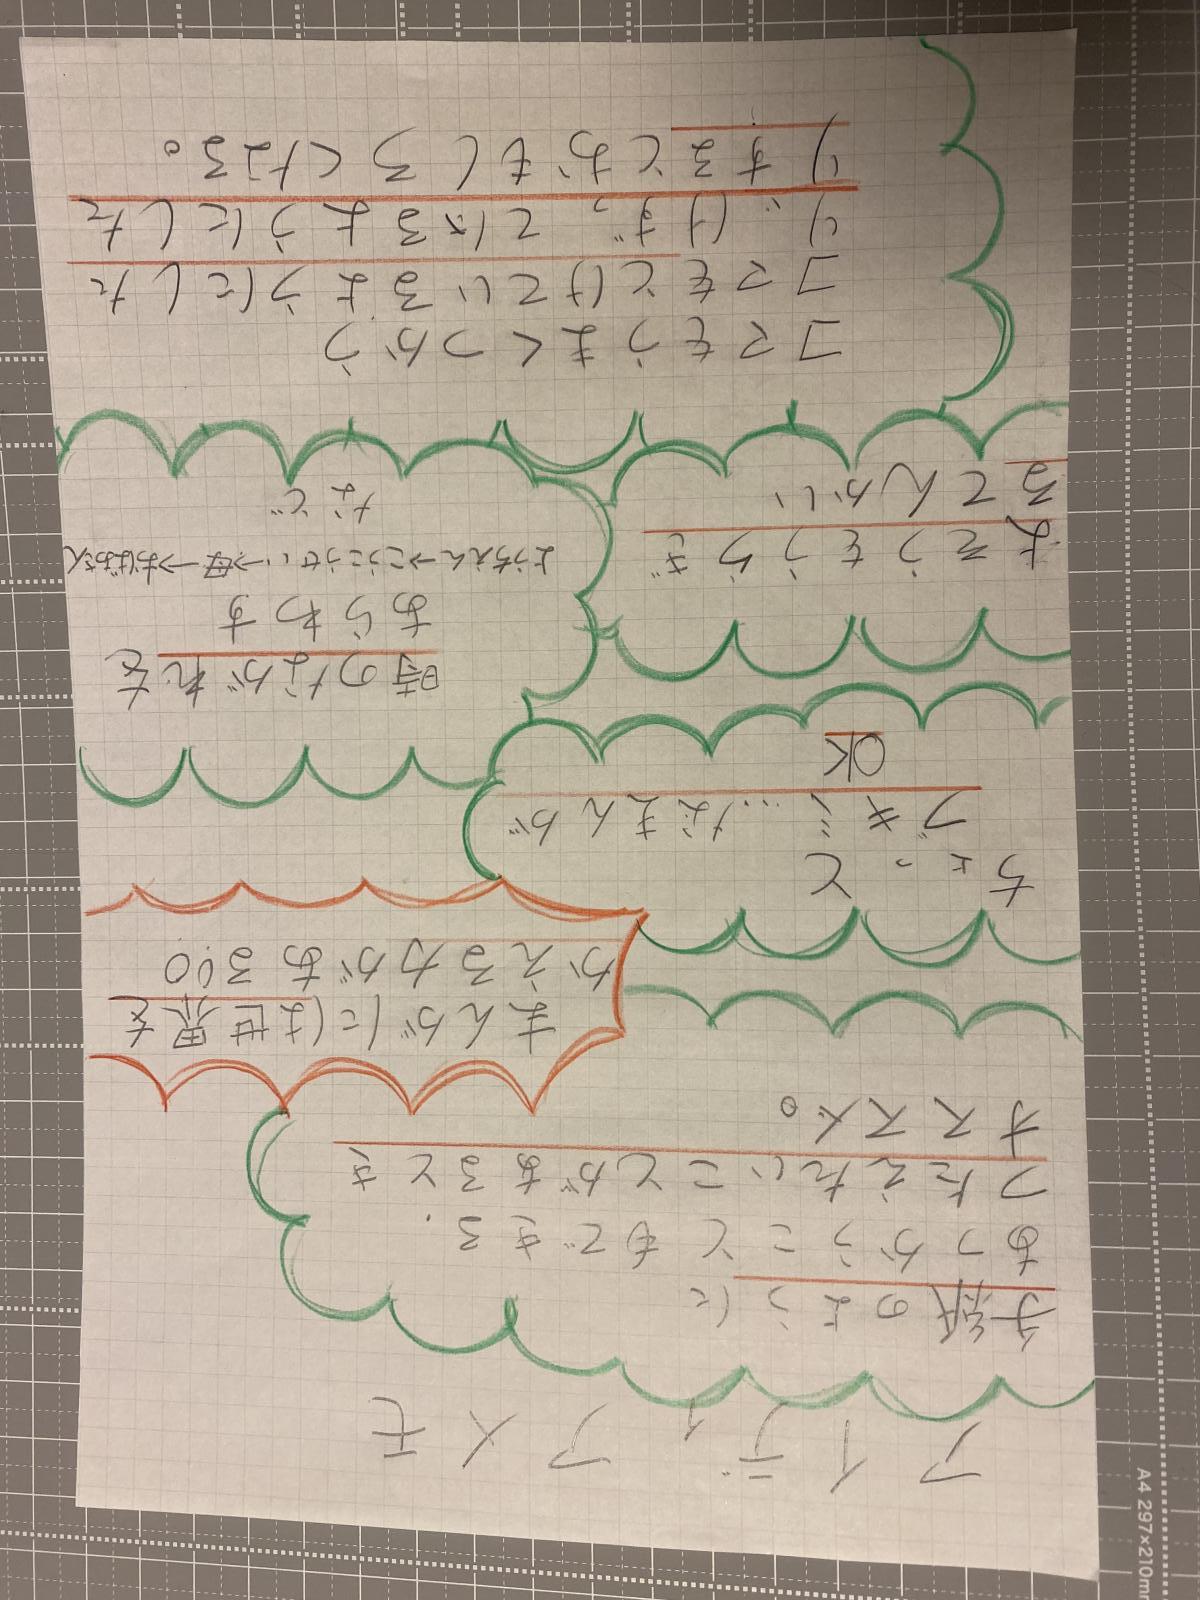 アイディアメモ
手紙のように
あつかうこともできる.
つたえたいことがあるとき
オススメ。
まんがには世界を
かえる力がある!!
ちょっと
ブキミ…なまんが
OK
時のながれを
あらわす
ようちえん→こうこうせい→母→おばあさん
など
よそうをうらぎ
るてんかい
コマをうまくつかう
コマをとけているようにした
り、けずっているようにした
りするとおもしろくなる。
A4 297×210mm